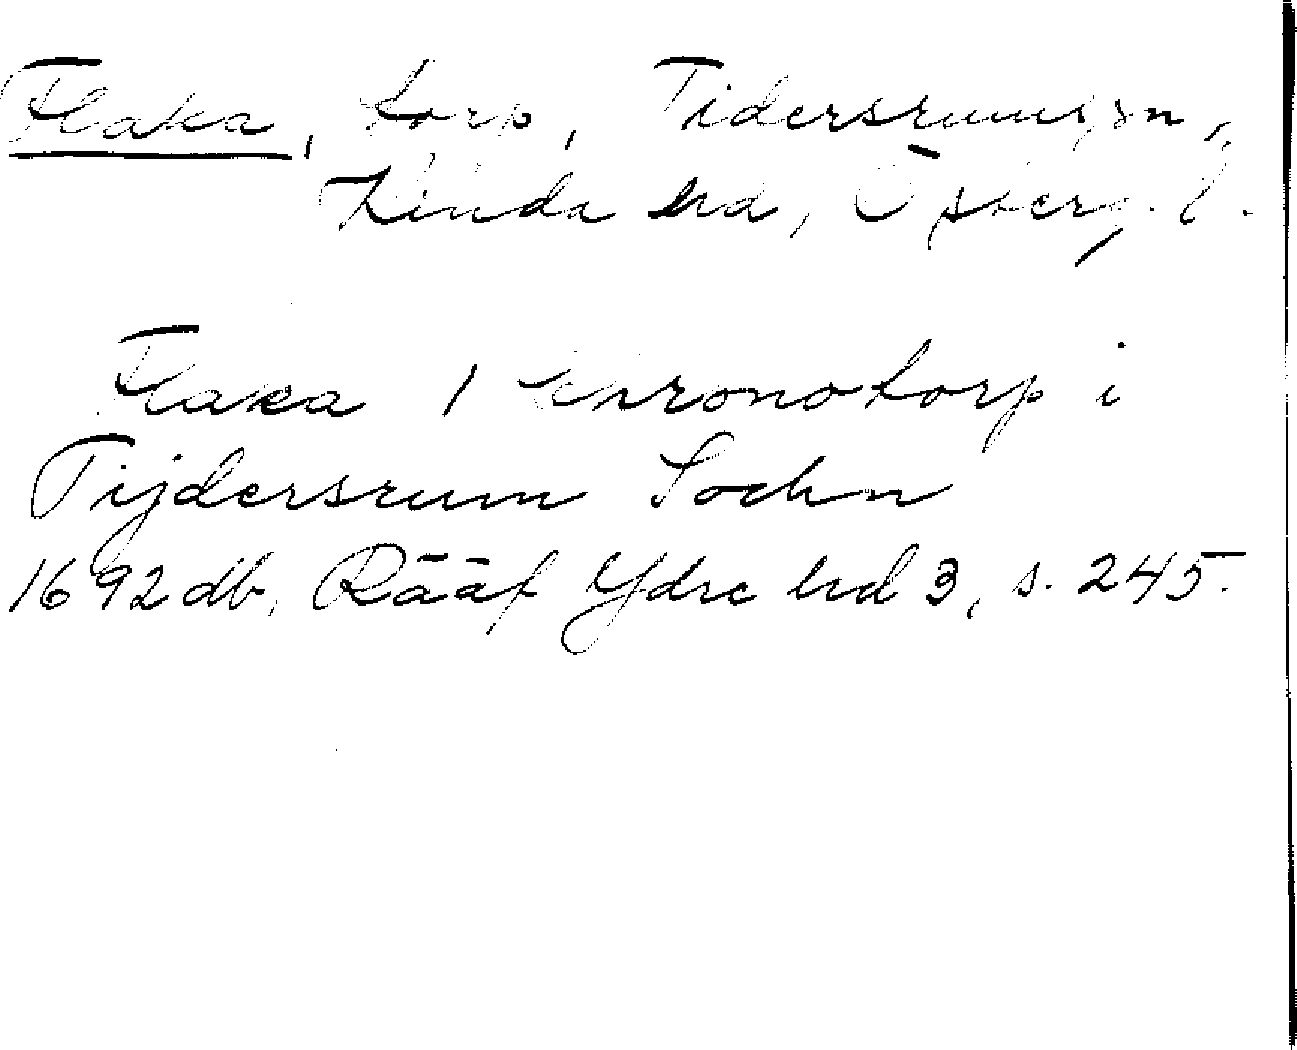 Flaka, torp, Tidersrums sn,
Kinda hd, Österg. l.
Flaka 1 Chronotorp i
Tijdersrum Sochn
1692 db, Rääf Ydre hd 3, s. 245.